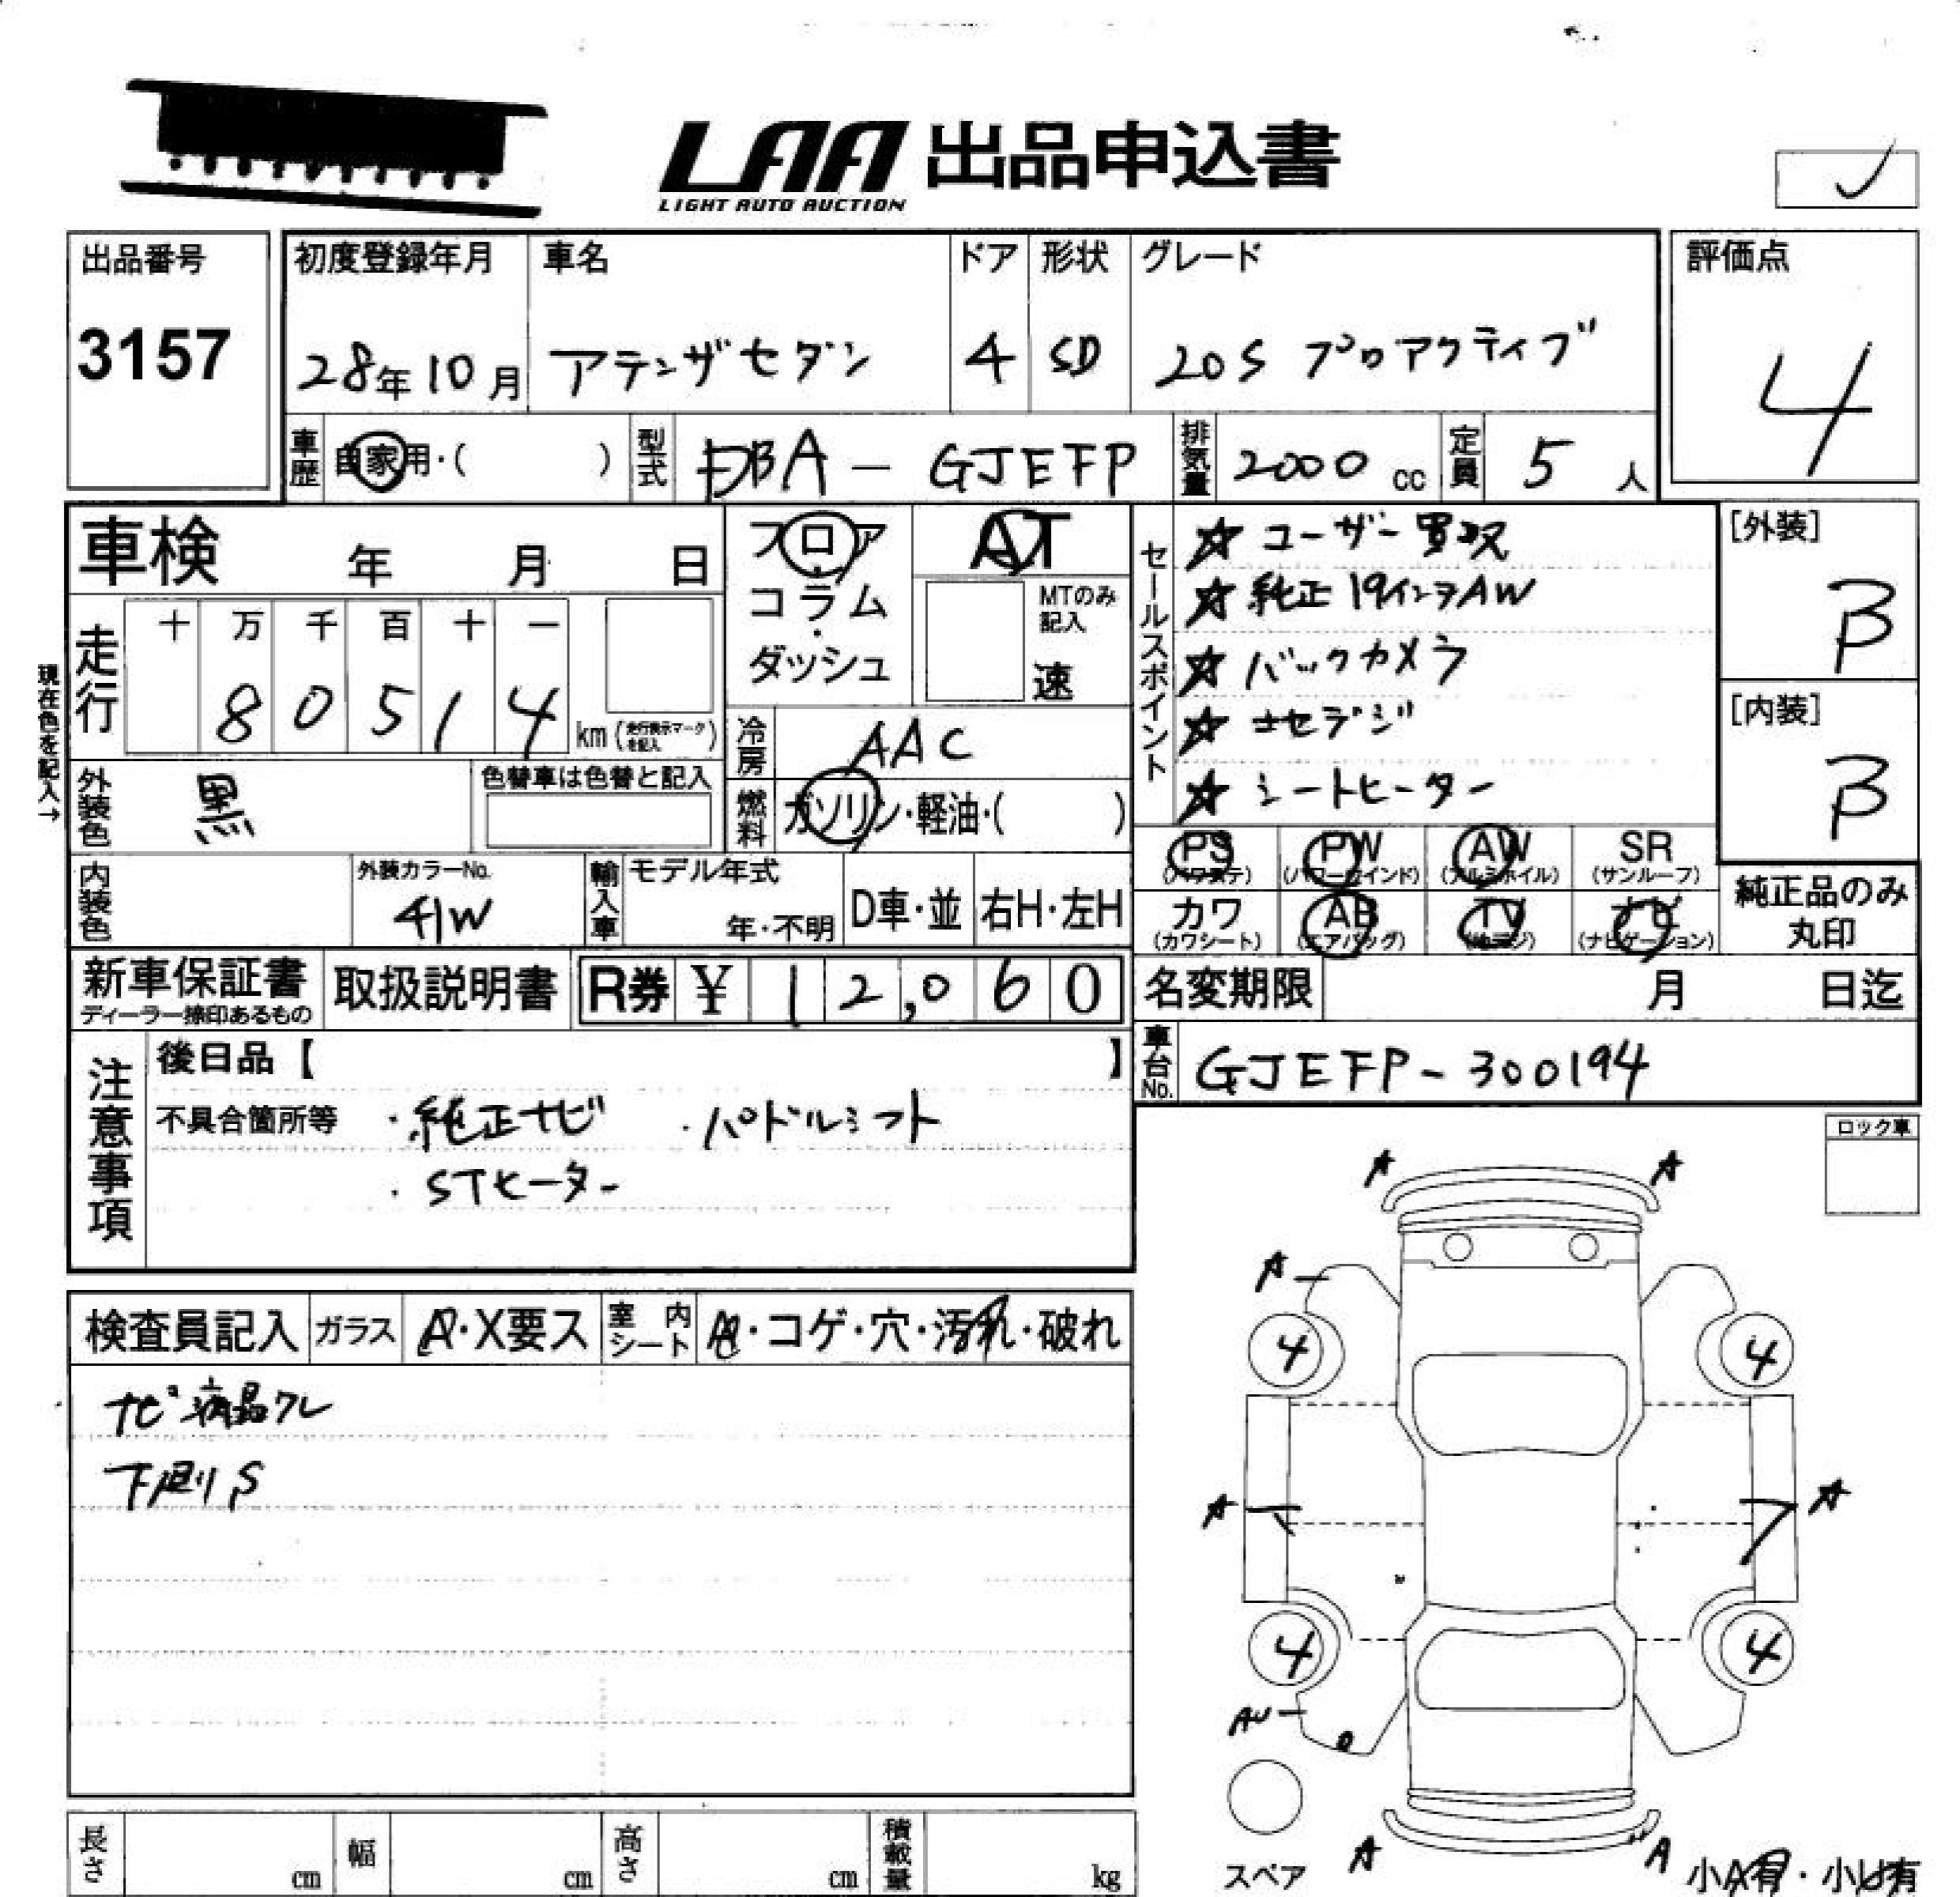 LAA 出品申込書
LIGHT AUTO AUCTION
出品番号
3157
初度登録年月 車名 ドア 形状 グレード
28年10月 アテンザセダン 4 SD 20S プロアクティブ
評価点
4
車歴 自家用・( ) 型式 DBA-GJEFP 排気量 2000 cc 定員 5 人
車検 年 月 日
走行 十 万 千 百 十 一
80514 km (走行表示マークを記入)
現在色を記入→
外装色 黒 色替車は色替と記入
内装色 外装カラーNo. 41W
輸入車 モデル年式 年・不明 D車・並 右H・左H
フロア・コラム・ダッシュ
AT
MTのみ記入
速
冷房 AAC
燃料 ガソリン・軽油・( )
セールスポイント
☆ ユーザー買取
☆ 純正19インチAW
☆ バックカメラ
☆ 地デジ
☆ シートヒーター
[外装]
B
[内装]
B
PS PW AW SR
(パワステ) (パワーウインド) (アルミホイル) (サンルーフ)
カワ AB TV ナビ
(カワシート) (エアバッグ) (ナビゲーション)
純正品のみ
丸印
新車保証書
ディーラー捺印あるもの
取扱説明書
R券 ¥ 12,060
名変期限 月 日迄
車台No. GJEFP-300194
注意事項
後日品【 】
不具合箇所等 ・純正ナビ ・パドルシフト
・STヒーター
ロック車
検査員記入 ガラス A・X要ス 室内シート ・コゲ・穴・汚れ・破れ
ナビ液晶ワレ
下廻りS
A A
A
4 4
A A
4 4
AU
スペア
A A
小A有・小U有
長さ cm 幅 cm 高さ cm 積載量 kg